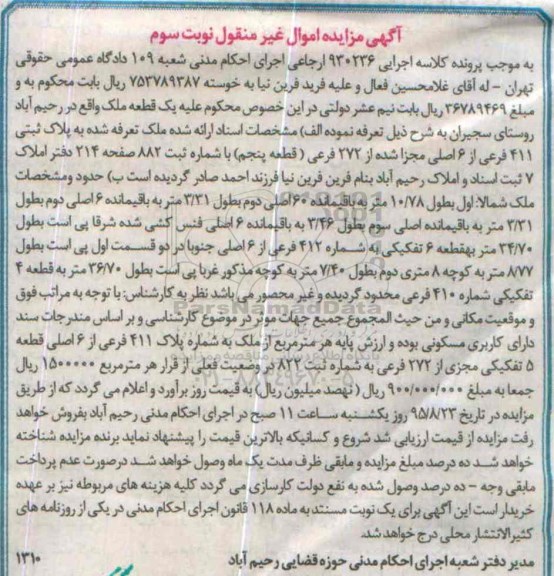 آگهی مزایده اموال غیر منقول نوبت سوم
به موجب پرونده کلاسه اجرایی ۹۳۰۲۳۶ ارجاعی اجرای احکام مدنی شعبه ۱۰۹ دادگاه عمومی حقوقی
تهران - له آقای غلامحسین فعال و علیه فرید فرین نیا به خوسته ۷۵۳۷۸۹۳۸۷ ریال بابت محکوم به و
مبلغ ۳۶۷۸۹۴۶۹ ریال بابت نیم عشر دولتی در این خصوص محکوم علیه یک قطعه ملک واقع در رحیم آباد
روستای سجیران به شرح ذیل تعرفه نموده الف) مشخصات اسناد ارائه شده ملک تعرفه شده به پلاک ثبتی
۴۱۱ فرعی از ۶ اصلی مجزا شده از ۲۷۲ فرعی ( قطعه پنجم) با شماره ثبت ۸۸۲ صفحه ۲۱۴ دفتر املاک
۷ ثبت اسناد و املاک رحیم آباد بنام فرین فرین نیا فرزند احمد صادر گردیده است ب) حدود ومشخصات
ملک شمالا: اول بطول ۱۰/۷۸ متر به باقیمانده ۶۰ اصلی دوم بطول ۳/۳۱ متر به باقیمانده ۶ اصلی دوم بطول
۳/۳۱ متر به باقیمانده اصلی سوم بطول ۳/۴۶ به باقیمانده ۶ اصلی فنس کشی شده شرقا پی است بطول
۳۴/۷۰ متر بهقطعه ۶ تفکیکی به شماره ۴۱۲ فرعی از ۶ اصلی جنوبا در دو قسمت اول پی است بطول
۸/۷۷ متر به کوچه ۸ متری دوم بطول ۷/۴۰ متر به کوچه مذکور غربا پی است بطول ۳۶/۷۰ متر به قطعه ۴
تفکیکی شماره ۴۱۰ فرعی محدود گردیده و غیر محصور می باشد نظر به کارشناس: با توجه به مراتب فوق
و موقعیت مکانی و من حیث المجموع جمیع جهات موثر در موضوع کارشناسی و بر اساس مندرجات سند
دارای کاربری مسکونی بوده و ارزش پایه هر مترمربع از ملک به شماره پلاک ۴۱۱ فرعی از ۶ اصلی قطعه
۵ تفکیکی مجزی از ۲۷۲ فرعی به شماره ثبت ۸۲۲ در وضعیت فعلی از قرار هر مترمربع ۱۵۰۰۰۰۰ ریال
جمعا به مبلغ ۹۰۰/۰۰۰/۰۰۰ ریال ( نهصد میلیون ریال) به قیمت روز برآورد و اعلام می گردد که از طریق
مزایده در تاریخ ۹۵/۸/۲۳ روز یکشنبه ساعت ۱۱ صبح در اجرای احکام مدنی رحیم آباد بفروش خواهد
رفت مزایده از قیمت ارزیابی شد شروع و کسانیکه بالاترین قیمت را پیشنهاد نماید برنده مزایده شناخته
خواهد شد ده درصد مبلغ مزایده و مابقی ظرف مدت یک ماه وصول خواهد شد درصورت عدم پرداخت
مابقی وجه - ده درصد وصول شده به نفع دولت کارسازی می گردد کلیه هزینه های مربوطه نیز بر عهده
خریدار است این آگهی برای یک نوبت مستند به ماده ۱۱۸ قانون اجرای احکام مدنی در یکی از روزنامه های
کثیرالانتشار محلی درج خواهد شد.
مدیر دفتر شعبه اجرای احکام مدنی حوزه قضایی رحیم آباد ۱۳۱۰